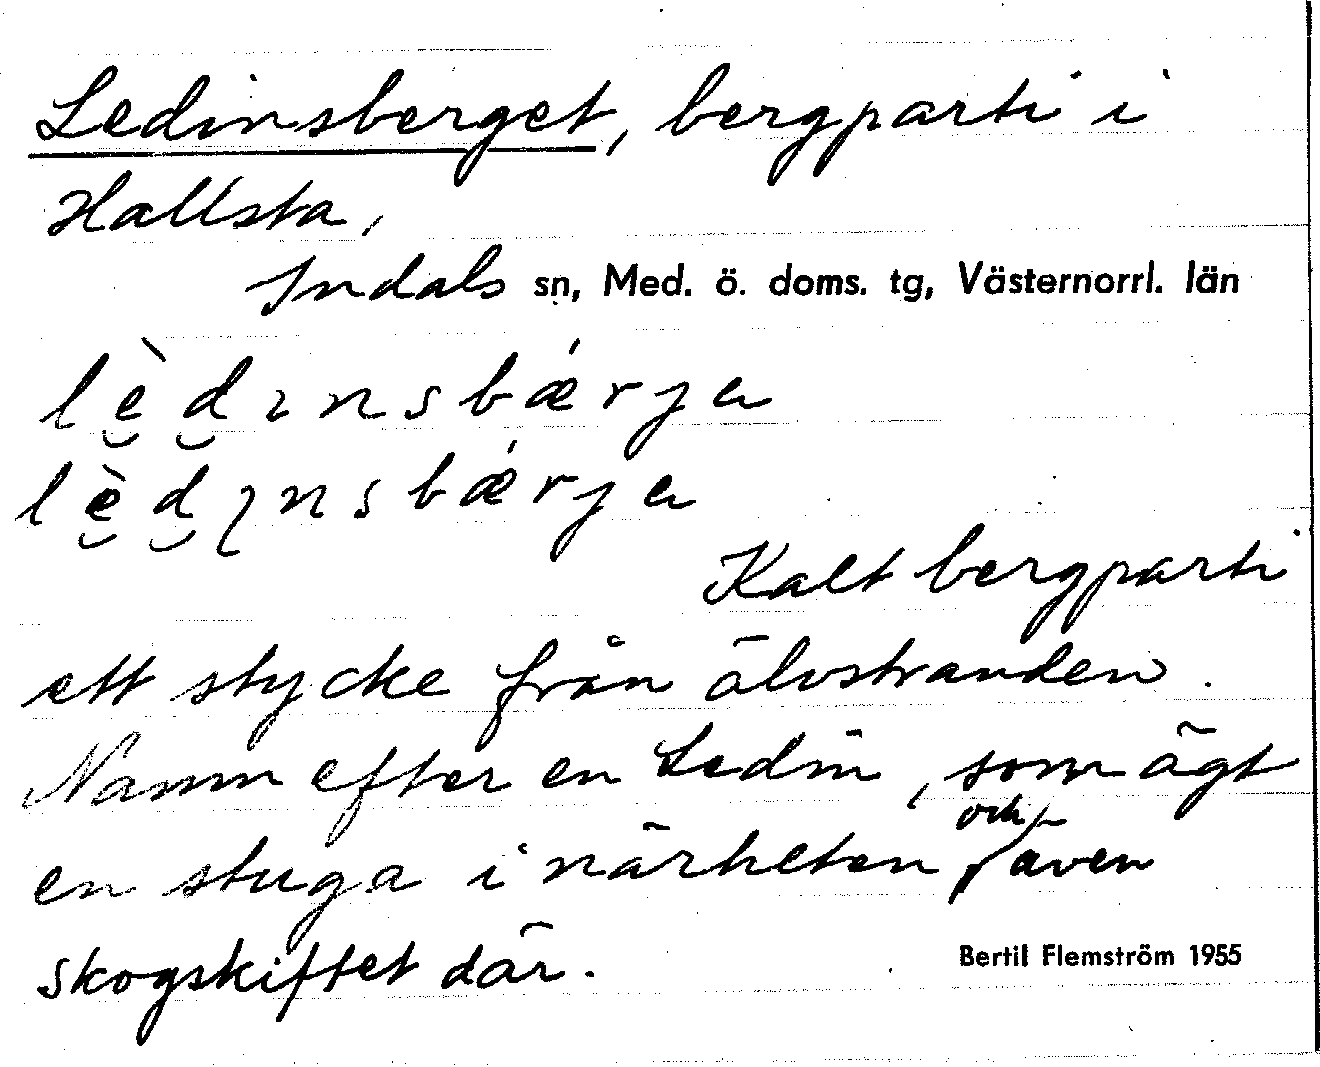 Ledinsberget, bergparti i
Hallsta,
Indals sn, Med. ö. doms. tg, Västernorrl. län
lèdınsbǽrjɐ
lèdınsbǽrjɐ
Kalt bergparti
ett stycke från älvstranden.
Namn efter en Ledin, som ägt
en stuga i närheten och även
skogskiftet där.
Bertil Flemström 1955